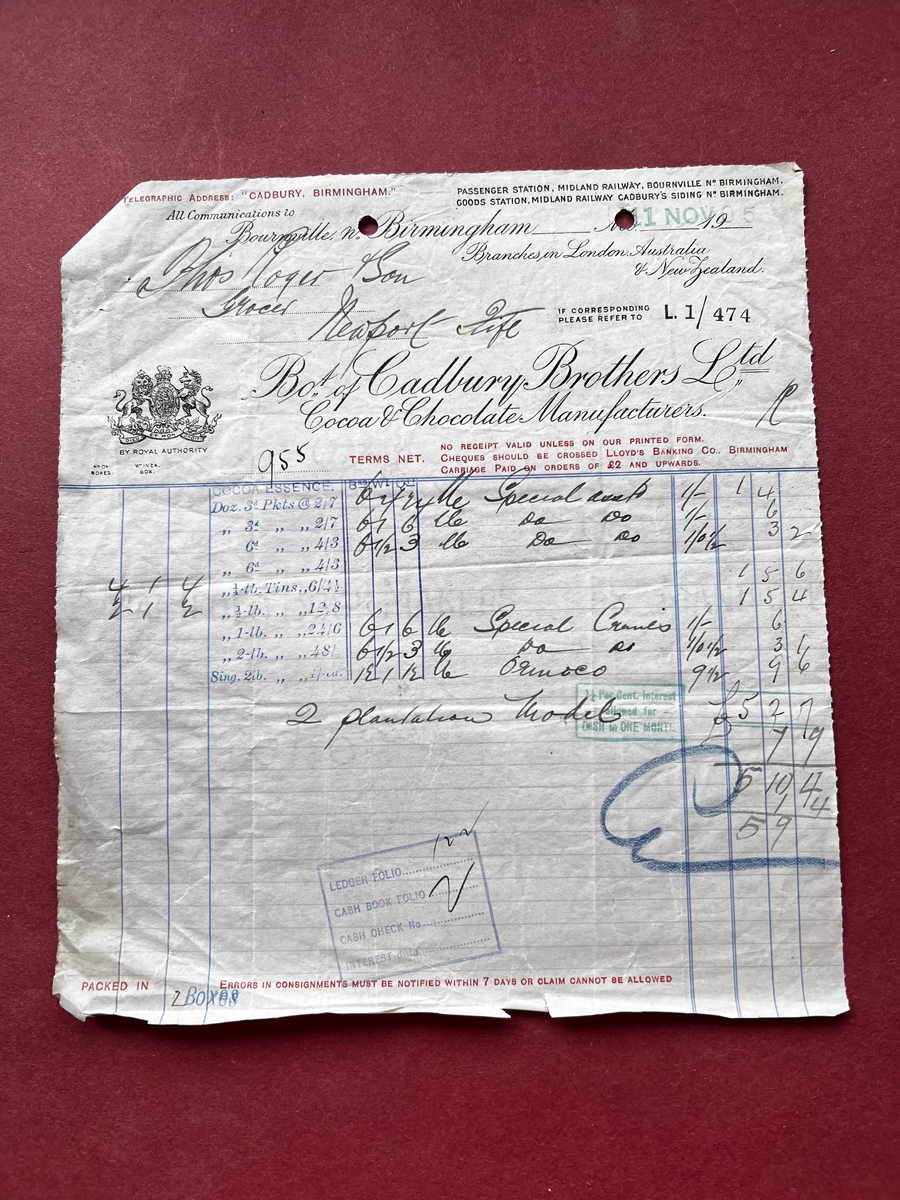 TELEGRAPHIC ADDRESS: "CADBURY, BIRMINGHAM."
PASSENGER STATION, MIDLAND RAILWAY, BOURNVILLE Nr BIRMINGHAM.
GOODS STATION, MIDLAND RAILWAY CADBURY'S SIDING Nr BIRMINGHAM.
All Communications to
Bournville, nr Birmingham 11 NOV 05 19
Branches in London, Australia
& New Zealand.
Thos Roger & Son
Grocer
Newport Fife
IF CORRESPONDING
PLEASE REFER TO L. 1/474
Bot of Cadbury Brothers Ltd
Cocoa & Chocolate Manufacturers.
BY ROYAL AUTHORITY
955
TERMS NET.
NO RECEIPT VALID UNLESS ON OUR PRINTED FORM.
CHEQUES SHOULD BE CROSSED LLOYD'S BANKING CO., BIRMINGHAM
CARRIAGE PAID ON ORDERS OF £2 AND UPWARDS.
No OF BOXES
COCOA ESSENCE.
Doz. 3d Pkts @ 2/7 Special 1/- 1 4
„ 3d „ „ 2/7 6 1 6 lb Do Do 1/- 6
„ 6d „ „ 4/3 6 1/2 3 lb Do Do 1/0½ 3 2
„ 6d „ „ 4/3
4 1 4 „ ¼-lb. Tins „ 6/4½ 1 5 6
2 1 2 „ ½-lb. „ „ 12/8 1 5 4
„ 1-lb. „ „ 24/6 6 1 6 lb Special 1/- 6
„ 2-lb. „ „ 48/ 6 1/2 3 lb Do Do 1/0½ 3 1
Sing. 2lb. „ „ 12 1 12 lb Orinoco 9½ 9 6
2 plantation Models
1¼ Per Cent. Interest
allowed for
CASH in ONE MONTH
£ 5 2 7
7 9
5 10 4
1 4
5 9
LEDGER FOLIO 122
CASH BOOK FOLIO
CASH CHECK No
INTEREST
PACKED IN 2 BOXES
ERRORS IN CONSIGNMENTS MUST BE NOTIFIED WITHIN 7 DAYS OR CLAIM CANNOT BE ALLOWED